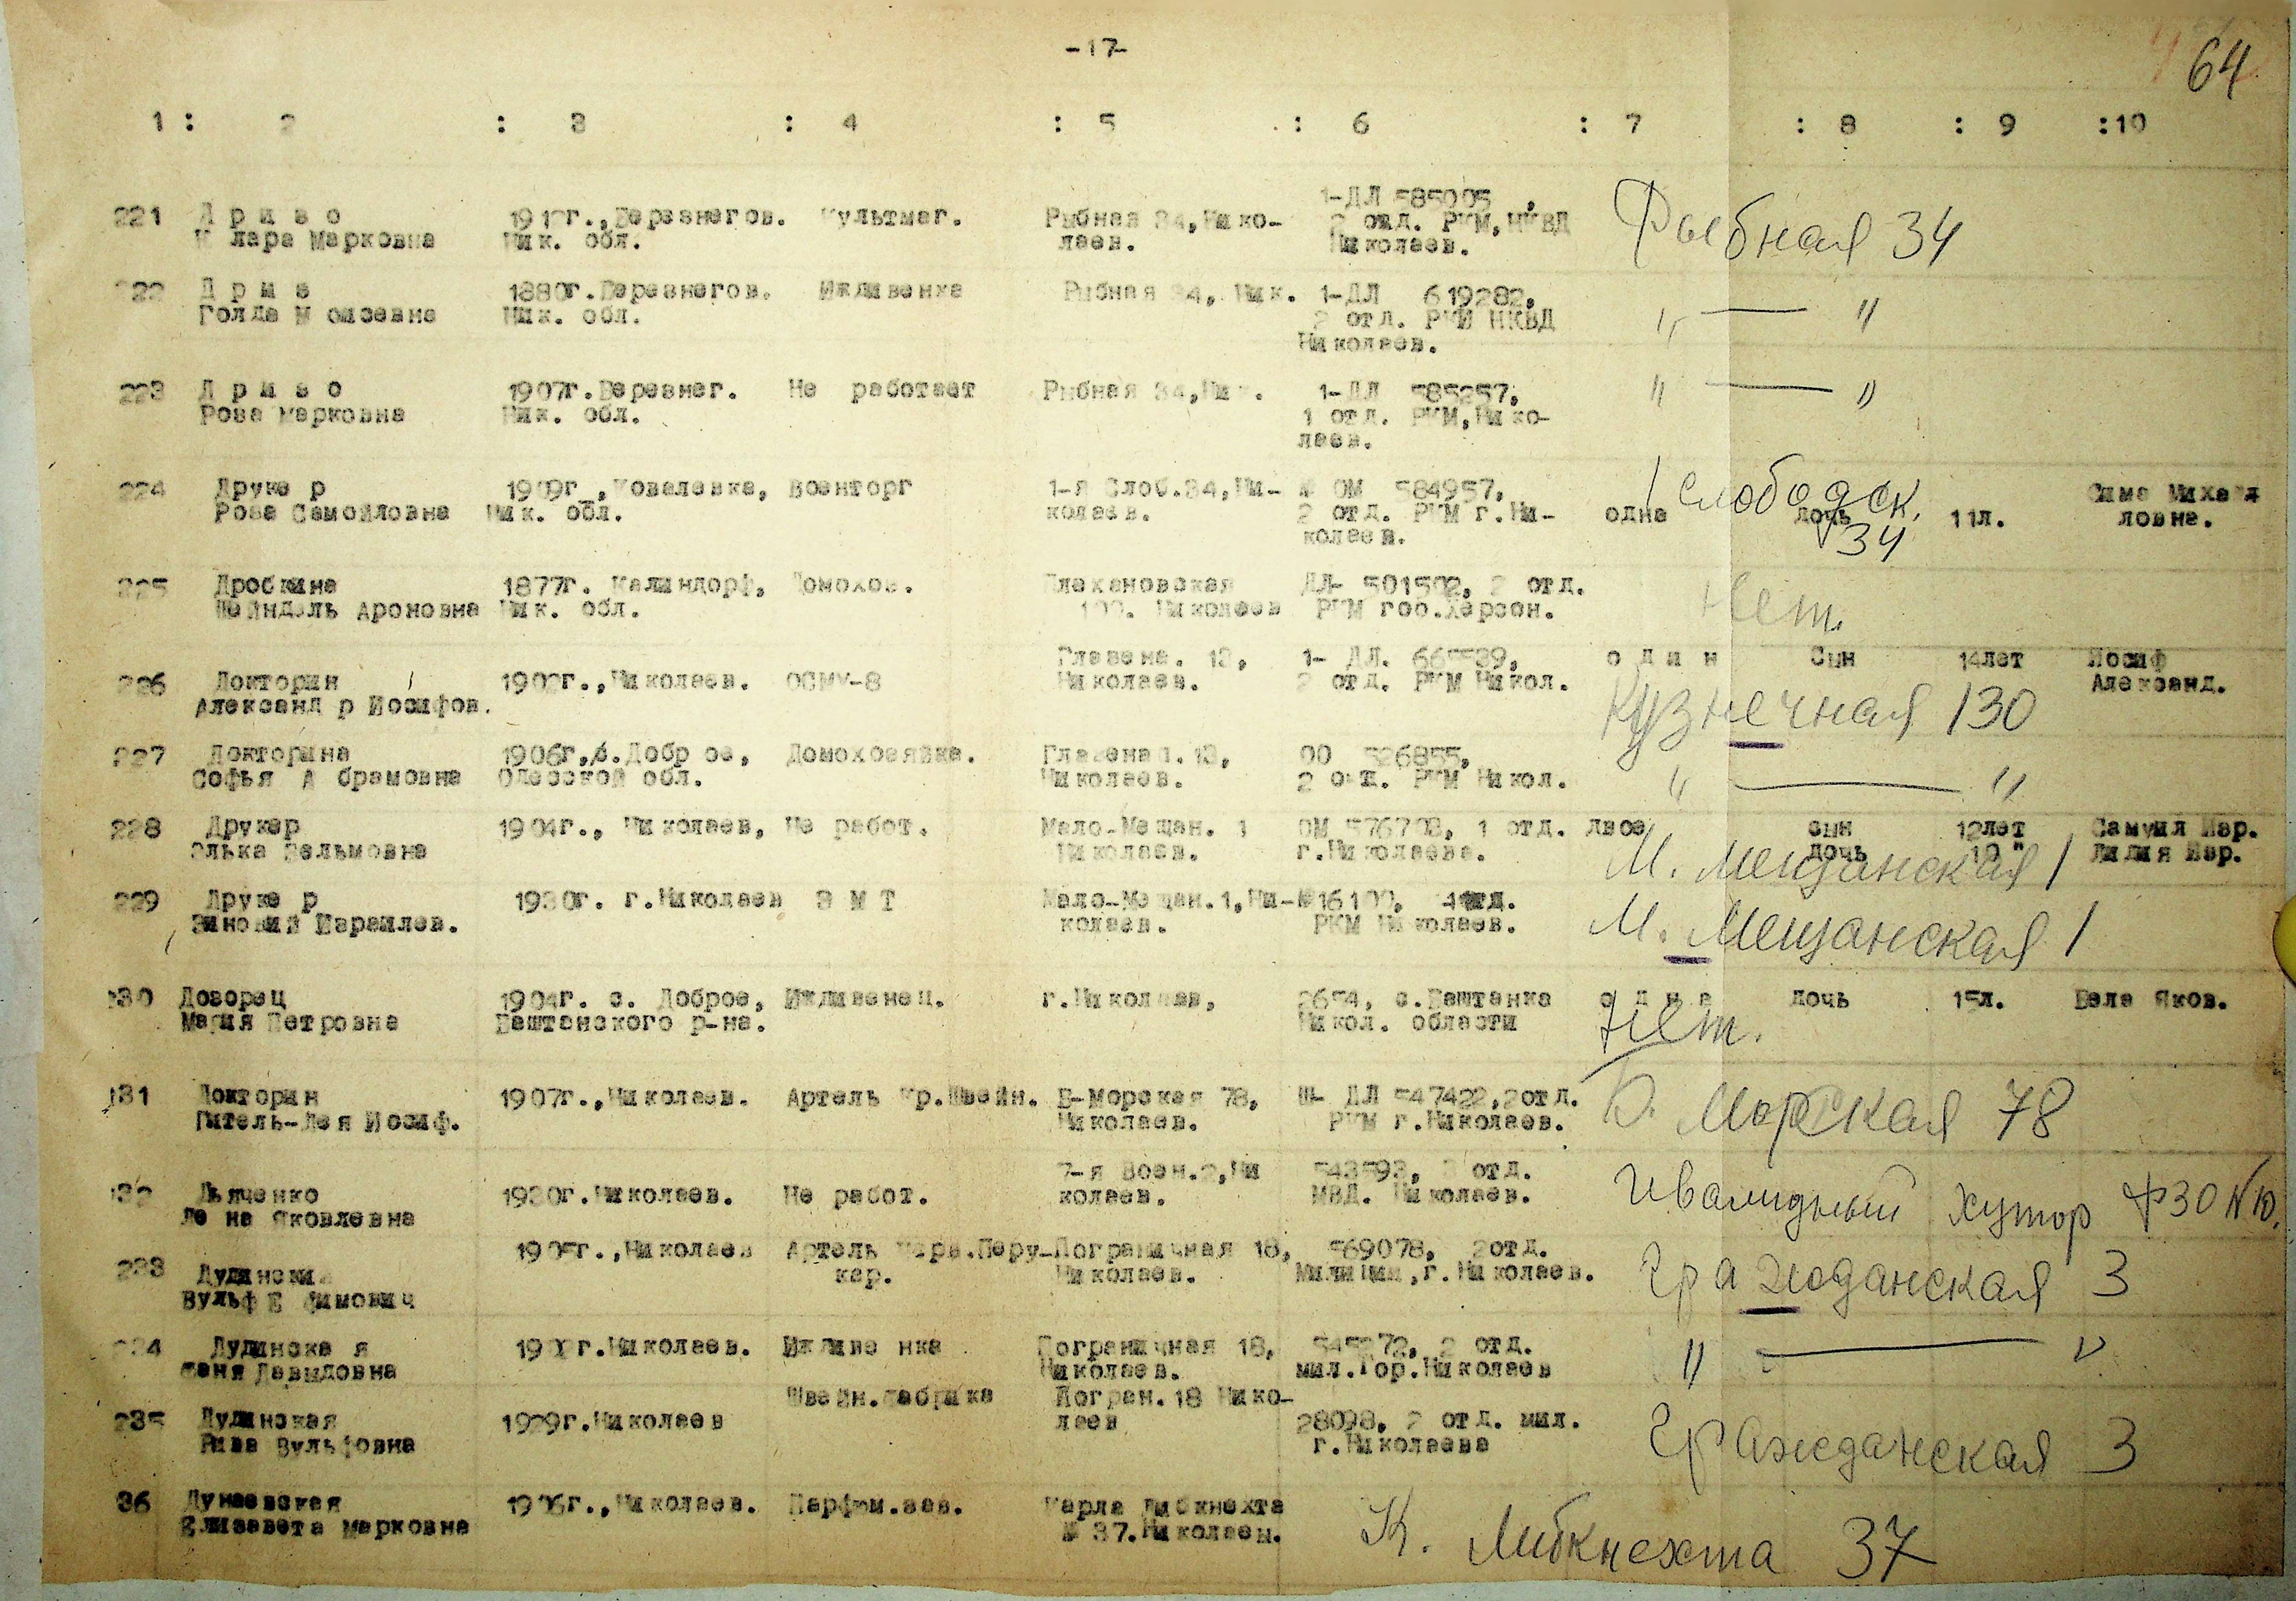 -17-
64
1 : 2 : 3 : 4 : 5 : 6 : 7 : 8 : 9 :10
1-ДЛ 585005 ,
221 Д р и з о 191 г.,Березнегов. Культмаг. Рыбная 34,Нико- 2 отд. РКМ,НКВД Рыбная 34
Клара Марковна Ник. обл. лаев. Николаев.
22 Д р и з 1880г.Березнегов. Иждивенка Рыбная 34, Ник. 1-ДЛ 619282,
Голда Моисеевна Ник. обл. 2 отд. РКМ НКВД " — "
Николаев.
223 Д р и з о 1907г.Березнег. Не работает Рыбная 34,Ник. 1-ДЛ 585257, " — "
Роза Марковна Ник. обл. 1 отд. РКМ,Нико-
лаев.
224 Друкер 1909г.,Ковалевка, Военторг 1-я Слоб.34,Ни- № ОМ 584957, 1 Слободск. Сима Михай
Роза Самойловна Ник. обл. колаев. 2 отд. РКМ г.Ни- одна дочь 11л. ловна.
колаев. 34
225 Дробкина 1877г. Калиндорф, Домохоз. Плехановская ДЛ- 501502, 2 отд. Нет.
Шейндель Ароновна Ник. обл. Николаев РКМ гор.Херсон.
Глазена. 13, 1- ДЛ. 66 539, о д и н Сын 14лет Иосиф
226 Докторин 1902г.,Николаев. ОСМУ-8 Николаев. 2 отд. РКМ Никол. Александ.
Александр Иосифов. Кузнечная 130
227 Докторина 1906г,с.Доброе, Домохозяйка. Глазенап.13, ОО 526855,
Софья Абрамовна Одесской обл. Николаев. 2 отд. РКМ Никол. " — "
228 Друкер 1904г., Николаев, Не работ. Мало-Мещан. 1 ОМ 576703, 1 отд. двое сын 12лет Самуил Изр.
Элька Зельмовна Николаев. г.Николаева. дочь 10 " Лилия Изр.
М. Мещанская 1
229 Друкер 1930г. г.Николаев З М Т Мало-Мещан.1,Ни- №16100, 1 отд.
Зиновий Израилев. колаев. РКМ Николаев. М. Мещанская 1
230 Дозорец 1904г. с. Доброе, Иждивенец. г.Николаев, 2654, с.Баштанка о д н а дочь 15л. Бела Яков.
Мария Петровна Баштанского р-на. Никол. области Нет.
231 Докторин 1907г.,Николаев. Артель Кр.Швейн. Б-Морская 78, Ш- ДЛ 547422,2отд. Б. Морская 78
Гитель-Лея Иосиф. Николаев. РКМ г.Николаев.
7-я Воен.2,Ни 543593, 3 отд.
232 Дьяченко 1930г.Николаев. Не работ. колаев. МВД. Николаев. Ивалидный хутор ф30 №10.
Лена Яковлевна
1905г.,Николаев Артель Черв.Перу- Пограничная 18, 569078, 2отд.
233 Дудински кар. Николаев. милиции,г.Николаев. Гражданская 3
Вульф Ефимович
234 Дудинская г.Николаев. Иждивенка Пограничная 18, 545 72, 2 отд.
Феня Давыдовна Николаев. мил.Гор.Николаев " — "
Швейн.фабрика Погран.18 Нико-
235 Дудинская 1929г.Николаев лаев 28098, 2 отд. мил. Гражданская 3
Рива Вульфовна г.Николаева
36 Дунаевская 1906г.,Николаев. Парфюм.зав. Карла Либкнехта
Елизавета Марковна № 37.Николаев. К. Либкнехта 37